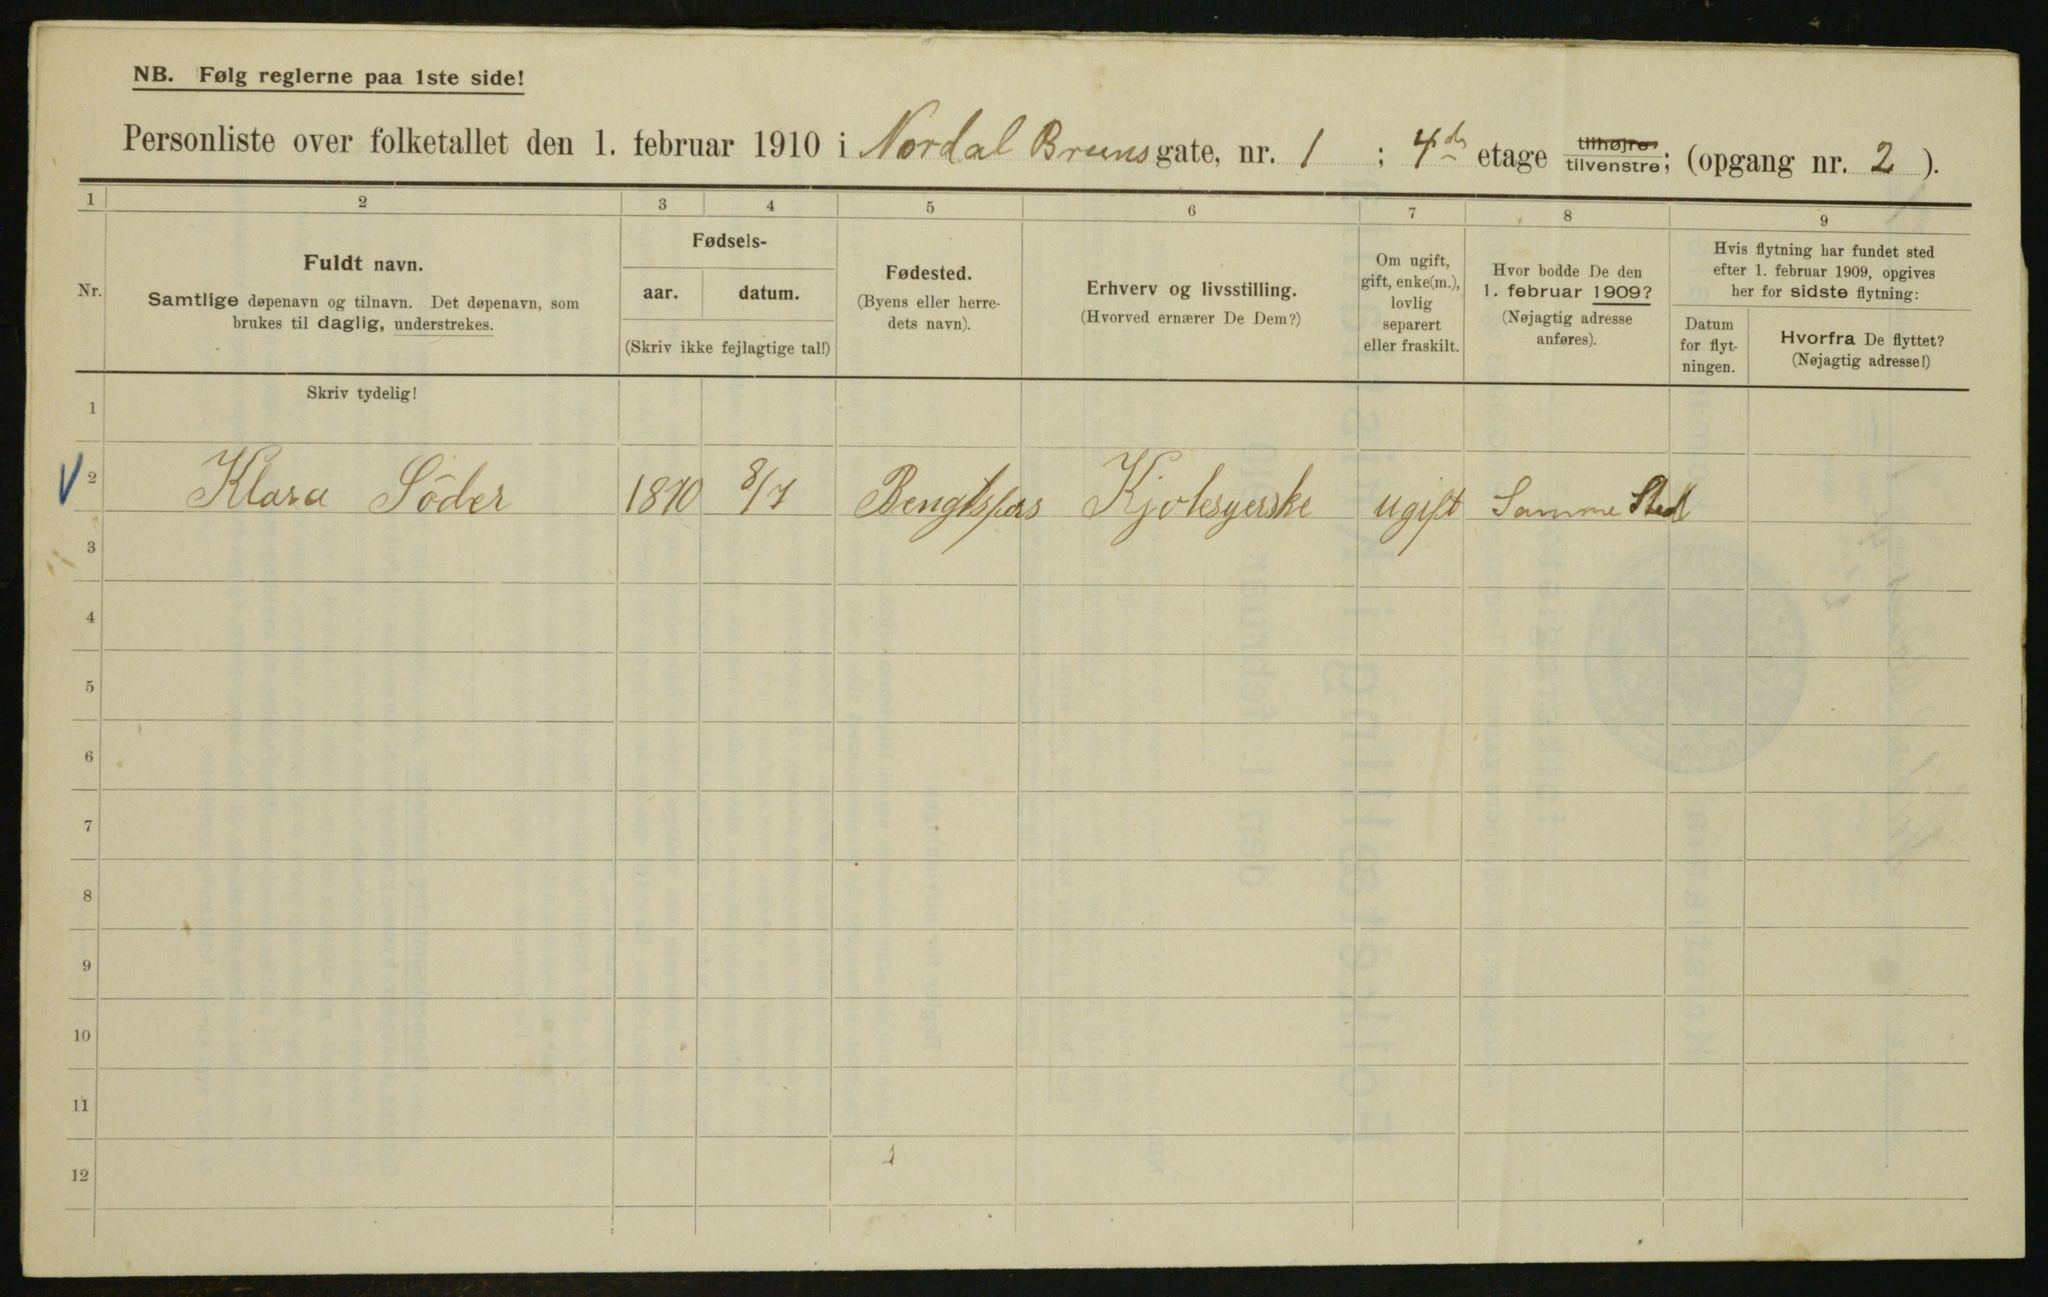 NB. Følg reglerne paa 1ste side!
Personliste over folketallet den 1. februar 1910 i Nordal Brunsgate, nr. 1 ; 4de etage tilhøjre tilvenstre; (opgang nr. 2 ).
1 2 3 4 5 6 7 8 9
Nr.
Fuldt navn.
Samtlige døpenavn og tilnavn. Det døpenavn, som
brukes til daglig, understrekes.
Fødsels-
aar. datum.
(Skriv ikke fejlagtige tal!)
Fødested.
(Byens eller herre-
dets navn).
Erhverv og livsstilling.
(Hvorved ernærer De Dem?)
Om ugift,
gift, enke(m.),
lovlig
separert
eller fraskilt.
Hvor bodde De den
1. februar 1909?
(Nøjagtig adresse
anføres).
Hvis flytning har fundet sted
efter 1. februar 1909, opgives
her for sidste flytning:
Datum
for flyt-
ningen.
Hvorfra De flyttet?
(Nøjagtig adresse!)
Skriv tydelig!
1
2 Klara Söder 1870 8/7 Bengtsfors Kjolesyerske ugift Samme Sted
3
4
5
6
7
8
9
10
11
12